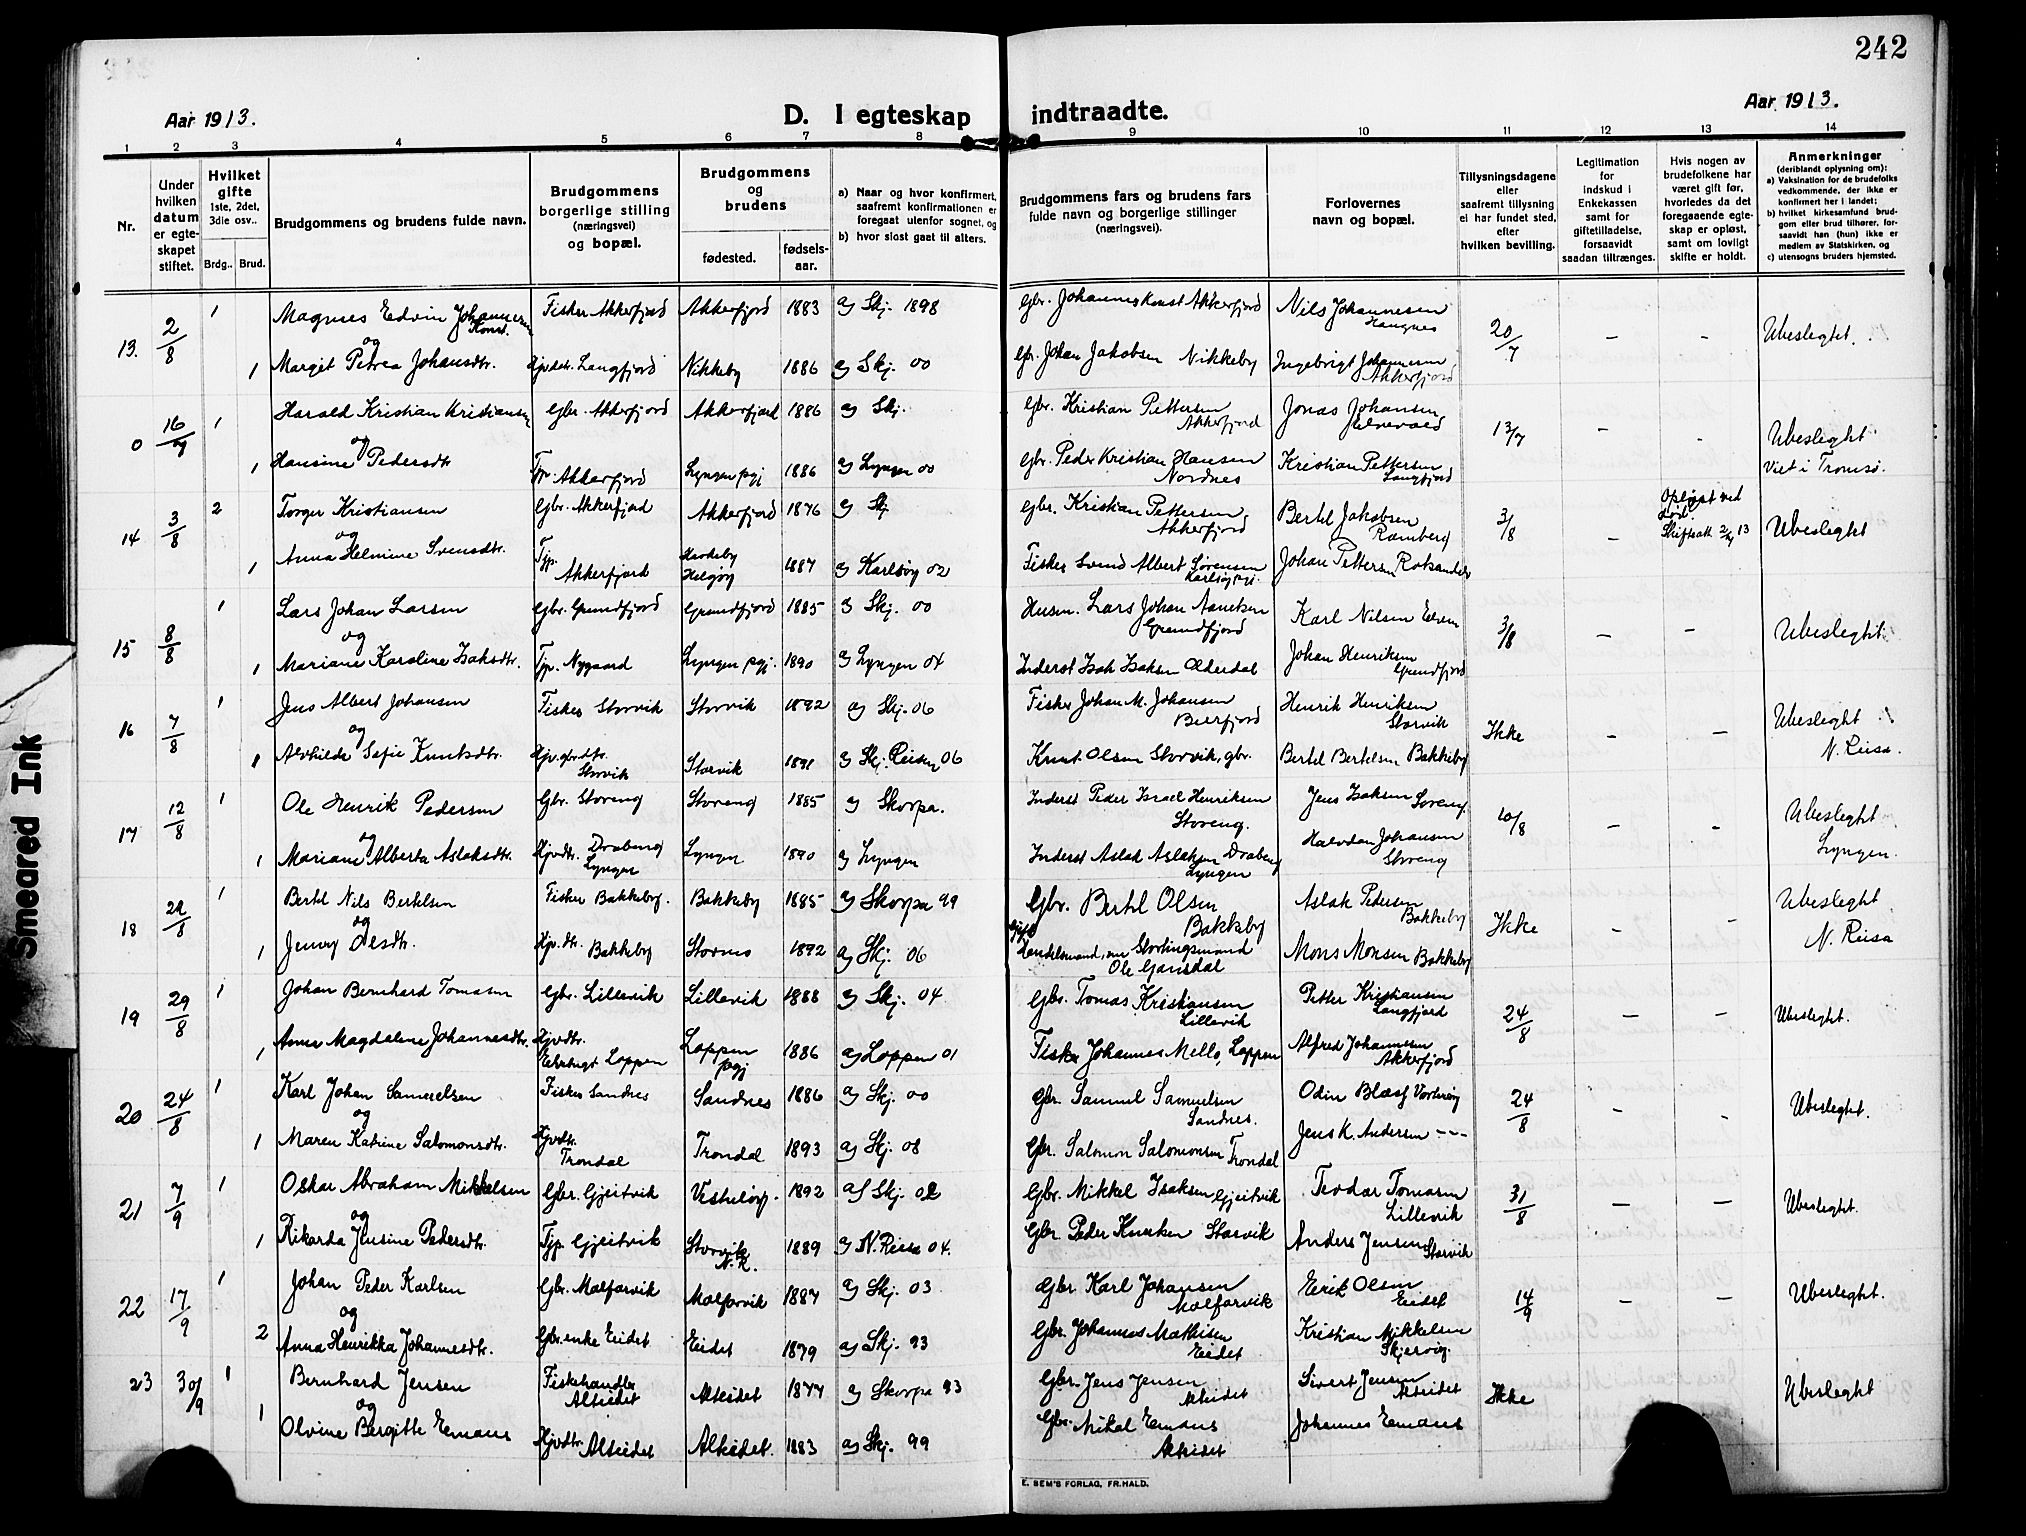 242
Aar 1913.
D. I egteskap indtraadte.
Aar 1913.
1 2 3 4 5 6 7 8 9 10 11 12 13 14
Nr.
Under hvilken datum er egteskapet stiftet.
Hvilket gifte 1ste, 2det, 3die osv..
Brdg.. Brud.
Brudgommens og brudens fulde navn.
Brudgommens borgerlige stilling (næringsvei) og bopæl.
Brudgommens og brudens
fødested.
fødsels-aar.
a) Naar og hvor konfirmert, saafremt konfirmationen er foregaat utenfor sognet, og
b) hvor sidst gaat til alters.
Brudgommens fars og brudens fars fulde navn og borgerlige stillinger (næringsvei).
Forlovernes navn og bopæl.
Tillysningsdagene eller saafremt tillysning ei har fundet sted, efter hvilken bevilling.
Legitimation for indskud i Enkekassen samt for giftetilladelse, forsaavidt saadan tiltrænges.
Hvis nogen av brudefolkene har været gift før, hvorledes da det foregaaende egteskap er opløst, samt om lovligt skifte er holdt.
Anmerkninger (deriblandt oplysning om): a) Vaksination for de brudefolks vedkommende, der ikke er konfirmert her i landet; b) hvilket kirkesamfund brudgom eller brud tilhører, forsaavidt han (hun) ikke er medlem av Statskirken, og c) utensogns bruders hjemsted.
13. 2/8 1 Magnus Edvin Johannesen Konst. Fisker Akkerfjord Akkerfjord 1883 a) Skj. 1898 Gbr. Johannes Konst Akkerfjord Nils Johannesen Hangnes 20/7 – – Ubeslegtet.
og
1 Margit Petrea Johansdtr. Hjv.dtr. Langfjord Nikkeby 1886 a) Skj. 00 Gbr. Johan Jakobsen Nikkeby Ingebrigt Johannesen Akkerfjord
0 16/7 1 Harald Kristian Kristiansen Gbr. Akkerfjord Akkerfjord 1886 a) Skj. Gbr. Kristian Pettersen Akkerfjord Jonas Johansen 13/7 – – Ubeslegtet
og
1 Hansine Pedersdtr Tjp. Akkerfjord Lyngen pgj 1886 a) Lyngen 00 Gbr. Peder Kristian Hansen Nordnes Kristian Pettersen Langfjord Viet i Tromsø.
14 3/8 2 Torger Kristiansen Gbr. Akkerfjord Akkerfjord 1876 a) Skj Gbr. Kristian Pettersen Akkerfjord Bertel Jakobsen Ramberg 3/8 – Opløst ved død. Skifteatt. 13 Ubeslegtet
og
1 Anna Helmine Svensdtr. Tjp. Akkerfjord Helgøy 1887 a) Karlsøy 02 Fisker Svend Albert Sørensen Karlsøy pgj. Johan Pettersen Rotsundelv
15 8/8 1 Lars Johan Larsen Gbr. Grundfjord Grundfjord 1885 a) Skj. 00 Husm. Lars Johan Grundfjord Karl Nilsen 3/8 – – Ubeslegtet.
og
1 Mariane Karoline Isaksdtr. Tjp. Nygaard Lyngen pgj. 1890 a) Lyngen 04 Inderst Isak Isaksen Olderdal Johan Henriksen Grundfjord
16 7/8 1 Jens Albert Johansen Fisker Storvik Storvik 1892 a) Skj. 06 Fisker Johan M. Johansen Henrik Henriksen Storvik Ikke – – Ubeslegtet
og
1 Alvhilde Sofie Knutsdtr. Storvik Storvik 1891 a) Skj. Reisen 06 Knut Olsen Storvik, gbr. Bertel Bertelsen Bakkeby N. Reisa.
17 12/8 1 Ole Henrik Pedersen Gbr. Storeng Storeng 1885 a) Skorpa. Inderst Peder Israel Henriksen Storeng. Jens Isaksen Soreng. 10/8 – – Ubeslegtet
og
1 Mariane Alberta Aslaksdtr. Hjvdtr. Drabeng Lyngen Lyngen 1890 a) Lyngen Inderst Aslak Aslaksen Drabeng Lyngen Halvdan Johansen Storeng Lyngen.
18 22/8 1 Bertel Nils Bertelsen Fisker Bakkeby. Bakkeby 1885 a) Skorpa 99 Gbr. Bertel Olsen Bakkeby Aslak Pedersen Bakkeby Ikke – – Ubeslegtet
og
1 Jenny Olesdtr. Hjv.dtr. Bakkeby Stornes 1892 a) Skj. 06 Handelsmand, Stortingsmand Ole Garsdal Mons Monsen Bakkeby N. Reisa
19 29/8 1 Johan Bernhard Tomasen Gbr. Lillevik Lillevik 1888 a) Skj. 04 Gbr. Tomas Kristiansen Lillevik Petter Kristiansen Langfjord 24/8 – – Ubeslegtet.
1 Anna Magdalene Johannesdtr. Hjvdtr. Loppen Loppen pgj 1886 a) Loppen 01 Fisker Johannes Mello, Loppen Alfred Johannesen Akkerfjord
20 24/8 1 Karl Johan Samuelsen Fisker Sandnes Sandnes 1886 a) Skj. 00 Gbr. Samuel Samuelsen Sandnes. Odin Vorterøy 24/8 – – Ubeslegtet.
og
1 Maren Katrine Salomonsdtr. Hjvdtr. Trondal Trondal 1893 a) Skj. 08 Gbr. Salomon Salomonsen Trondal Jens K. Andersen – – –
21 7/9 1 Oskar Abraham Mikkelsen Gbr. Gjeitvik 1892 a) Skj. Gbr. Mikkel Isaksen, Gjeitvik Teodar Tomasen Lillevik 31/8 – – Ubeslegtet.
og
1 Rikarda Jensine Pedersdtr. Tjp. Gjeitvik Storvik N.R. 1889 a) N. Reisa 04. Gbr. Peder Knutsen Storvik Anders Jensen Storvik
22 17/9 1 Johan Peder Karlsen Gbr. Malfarvik Malfarvik 1887 a) Skj. 03 Gbr. Karl Johansen Malfarvik Eerik Olsen Eidet 14/9 – – Ubeslegtet.
og
2 Anna Henrikka Johannesdtr. Gbr.enke Eidet Eidet 1879 a) Skj. 93 Gbr. Johannes Mathisen Eidet Kristian Mikkelsen Skjervøy.
23 30/9 1 Bernhard Jensen Fiskehandler Alteidet Alteidet 1877 a) Skorpa 93 Gbr. Jens Jensen Alteidet Sivert Jensen Alteidet Ikke Ubeslegtet
og
1 Olvine Bergitte Emaus Hjvdtr. Alteidet Alteidet. 1883 a) Skj. 99 Gbr. Mikal Emaus Alteidet Johannes Emaus
E. SEM'S FORLAG, FR.HALD.
Smeared Ink